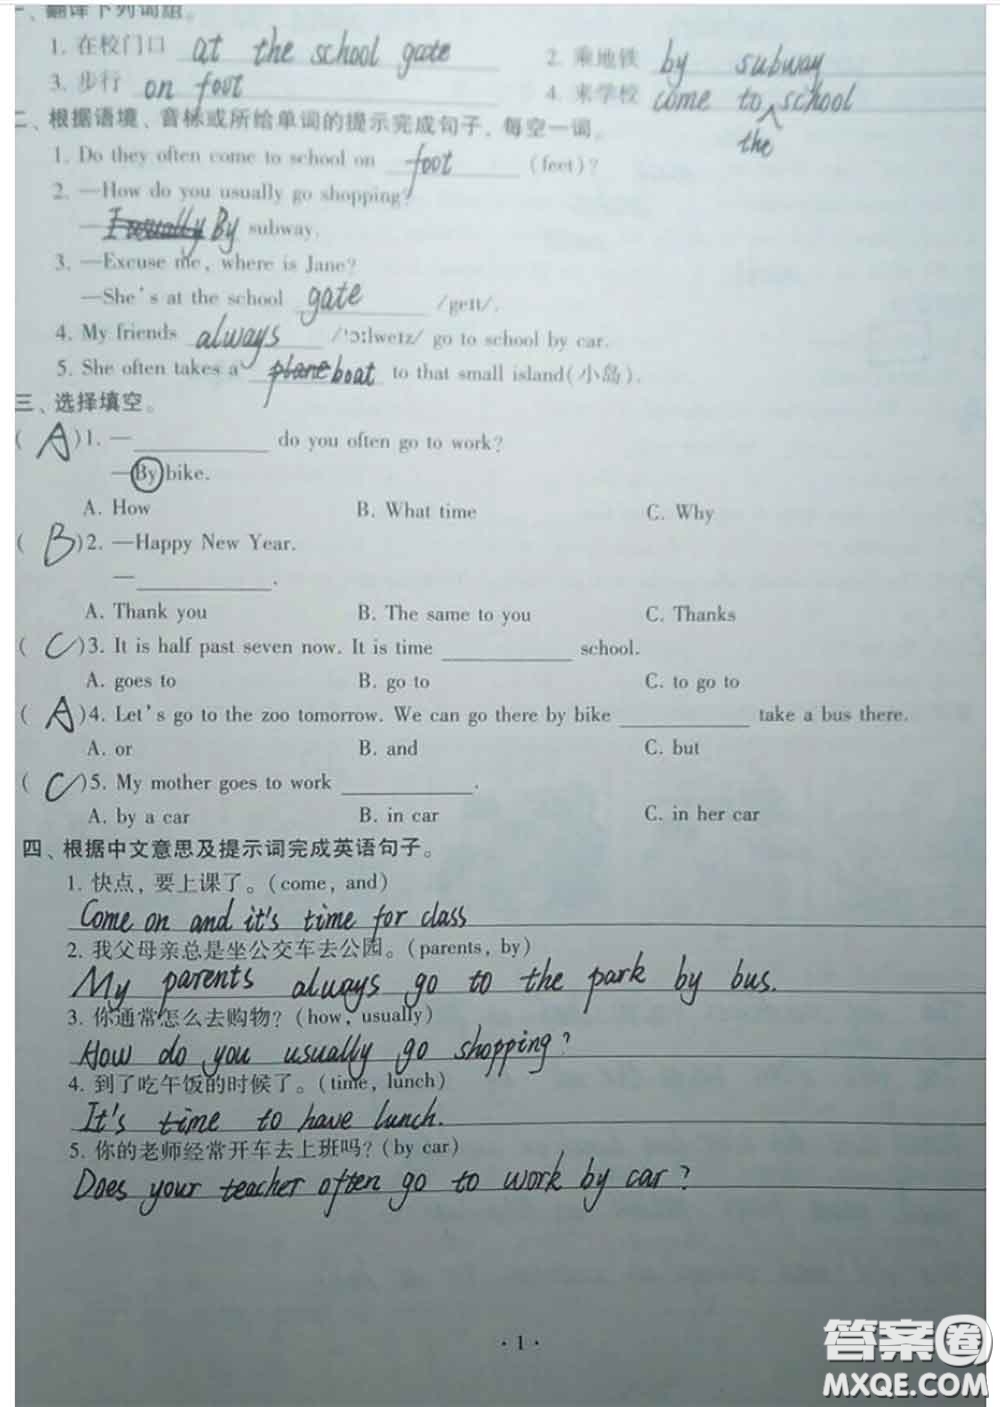 一、翻译下列词组。
1. 在校门口 at the school gate 2. 乘地铁 by subway
3. 步行 on foot 4. 来学校 come to school
the
二、根据语境、音标或所给单词的提示完成句子，每空一词。
1. Do they often come to school on foot (feet)?
2. —How do you usually go shopping?
—I usually By subway.
3. —Excuse me, where is Jane?
—She's at the school gate /geɪt/.
4. My friends always /'ɔːlweɪz/ go to school by car.
5. She often takes a plane boat to that small island(小岛).
三、选择填空。
( A )1. — ________ do you often go to work?
—By bike.
A. How B. What time C. Why
( B )2. —Happy New Year.
— ________.
A. Thank you B. The same to you C. Thanks
( C )3. It is half past seven now. It is time ________ school.
A. goes to B. go to C. to go to
( A )4. Let's go to the zoo tomorrow. We can go there by bike ________ take a bus there.
A. or B. and C. but
( C )5. My mother goes to work ________.
A. by a car B. in car C. in her car
四、根据中文意思及提示词完成英语句子。
1. 快点，要上课了。(come, and)
Come on and it's time for class
2. 我父母亲总是坐公交车去公园。(parents, by)
My parents always go to the park by bus.
3. 你通常怎么去购物？(how, usually)
How do you usually go shopping?
4. 到了吃午饭的时候了。(time, lunch)
It's time to have lunch.
5. 你的老师经常开车去上班吗？(by car)
Does your teacher often go to work by car?
· 1 ·
答案圈
MXQE.COM